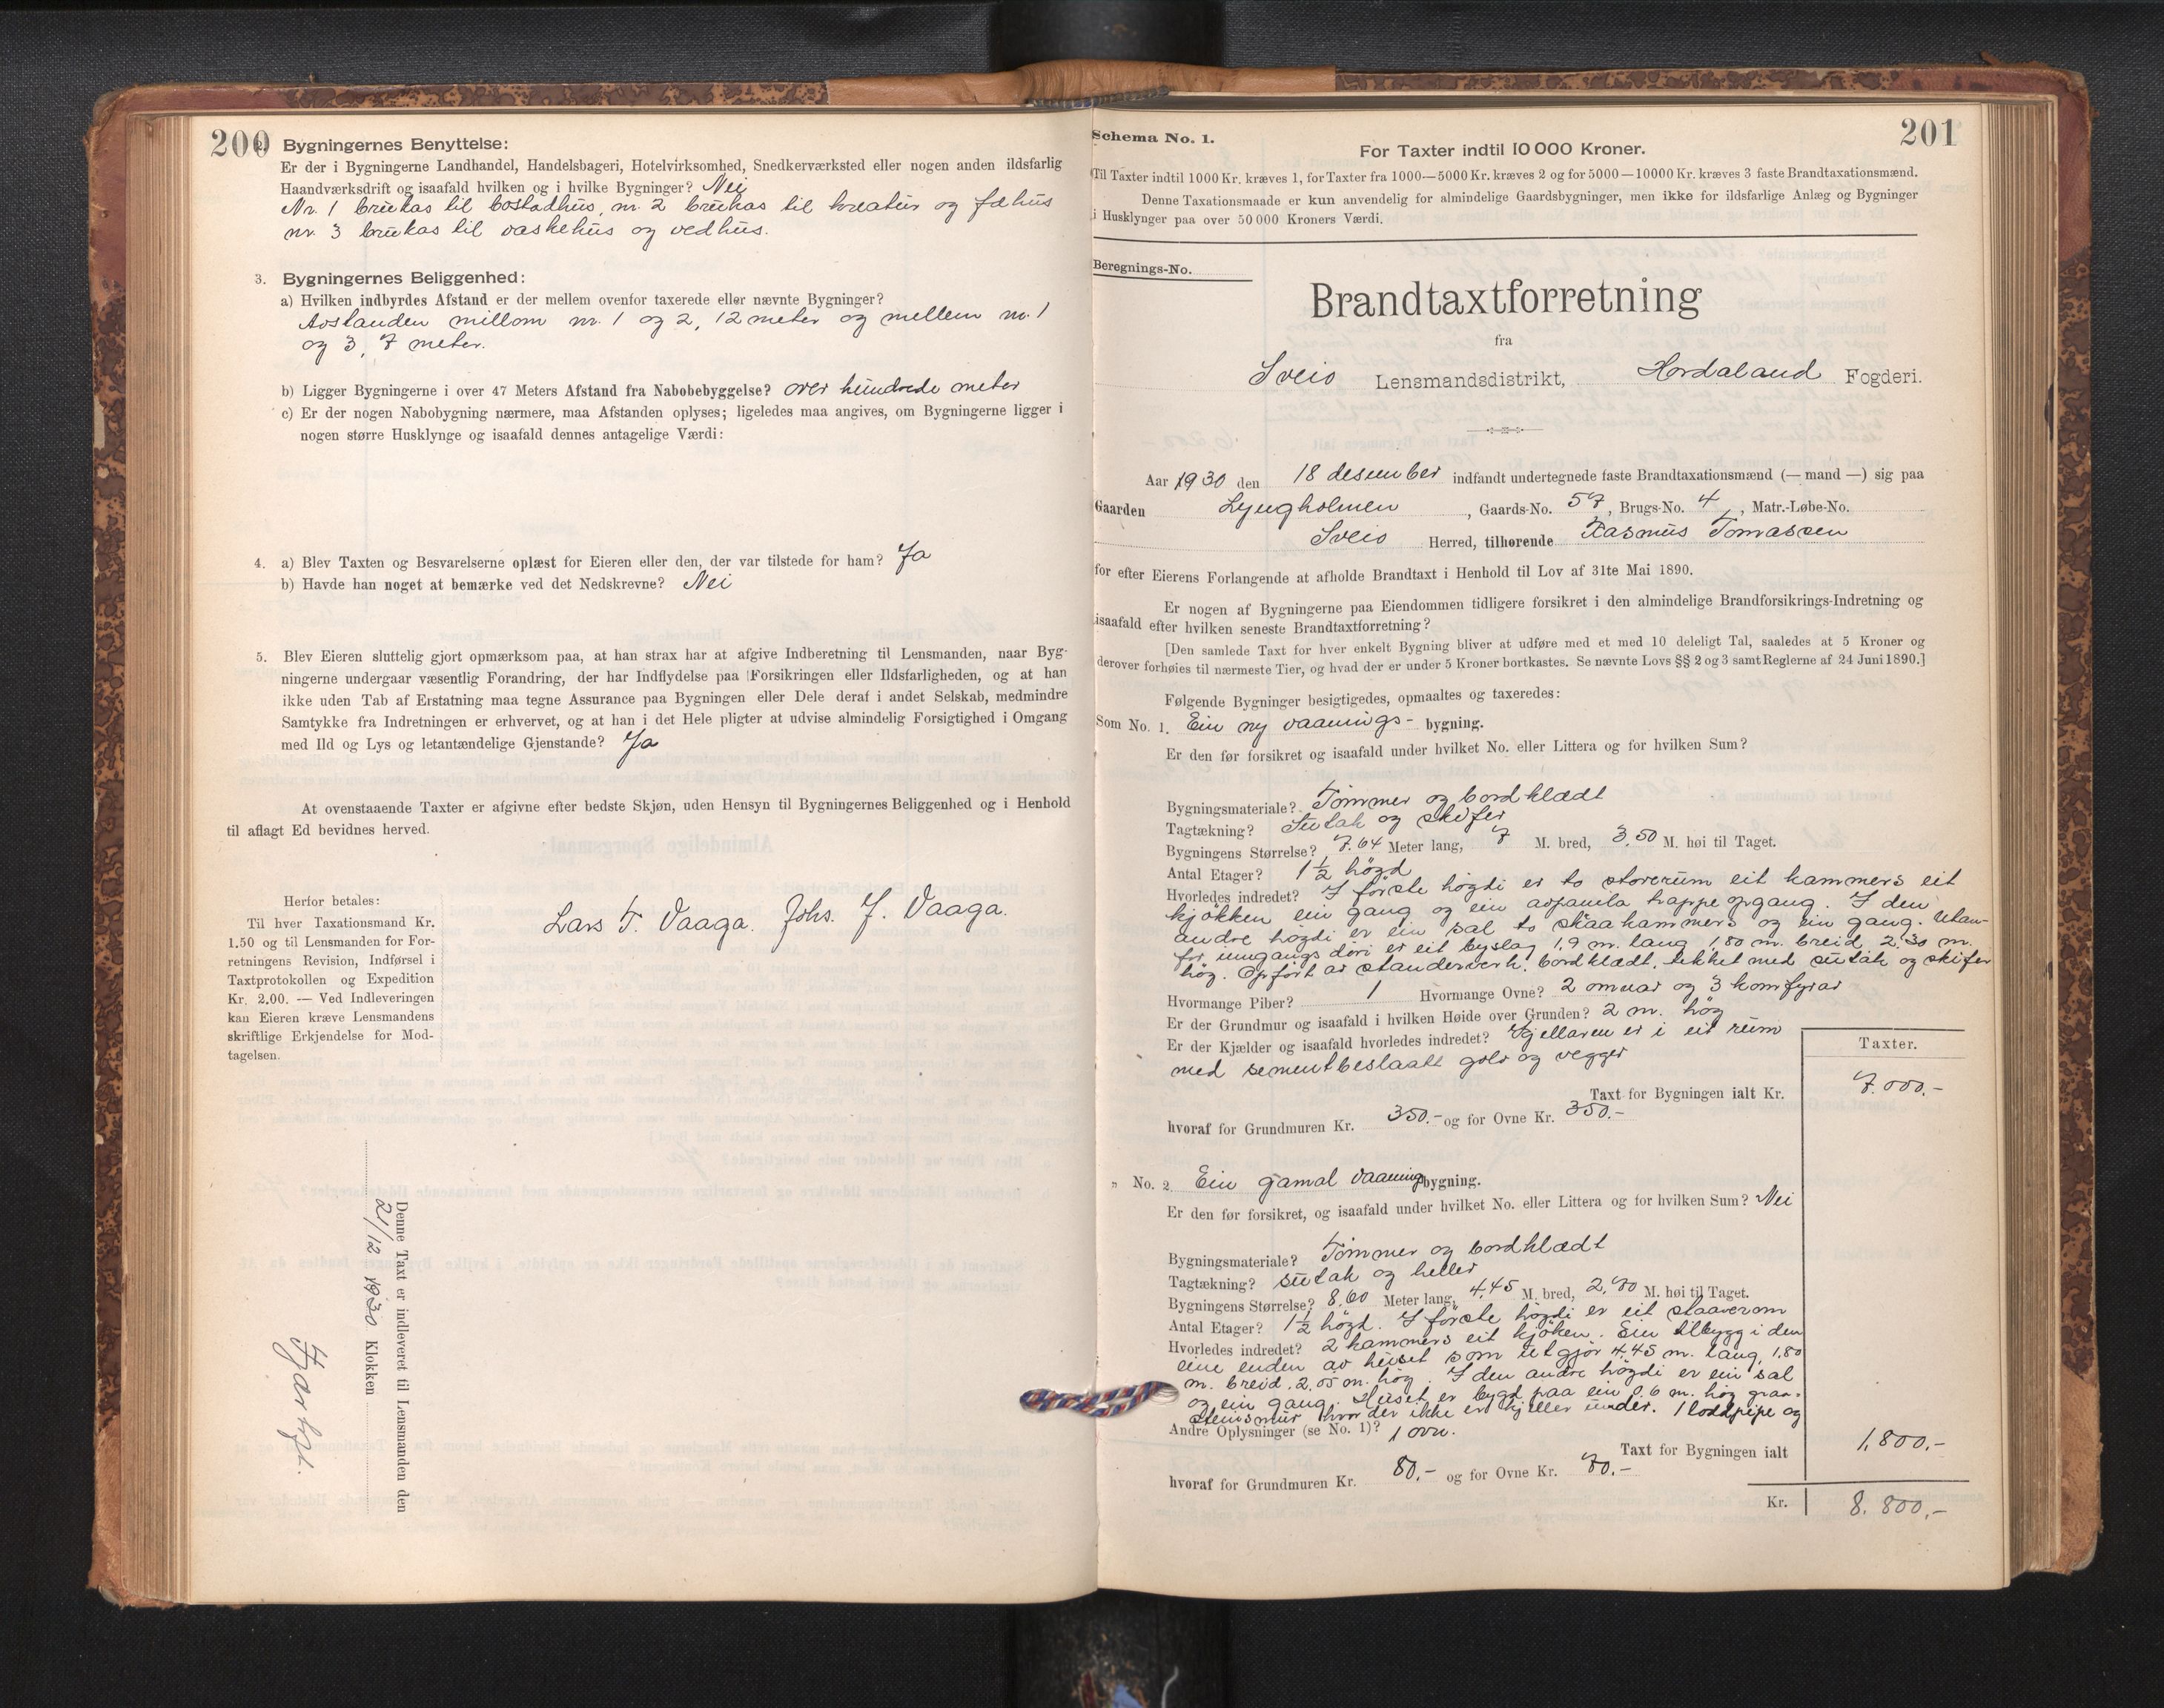 200
2. Bygningernes Benyttelse:
Er der i Bygningerne Landhandel, Handelsbageri, Hotelvirksomhed, Snedkerværksted eller nogen anden ildsfarlig
Haandværksdrift og isaafald hvilken og i hvilke Bygninger? Nei
Nr. 1 brukas til bostadhus, nr. 2 brukas til kreatur og fæhus
nr. 3 brukas til vaskehus og vedhus.
3. Bygningernes Beliggenhed:
a) Hvilken indbyrdes Afstand er der mellem ovenfor taxerede eller nævnte Bygninger?
Avstanden millom nr. 1 og 2, 12 meter og mellem nr. 1
og 3, 7 meter.
b) Ligger Bygningerne i over 47 Meters Afstand fra Nabobebyggelse? over hundrede meter
c) Er der nogen Nabobygning nærmere, maa Afstanden oplyses; ligeledes maa angives, om Bygningerne ligger i
nogen større Husklynge og isaafald dennes antagelige Værdi:
4. a) Blev Taxten og Besvarelserne oplæst for Eieren eller den, der var tilstede for ham? Ja
b) Havde han noget at bemærke ved det Nedskrevne? Nei
5. Blev Eieren sluttelig gjort opmærksom paa, at han strax har at afgive Indberetning til Lensmanden, naar Byg-
ningerne undergaar væsentlig Forandring, der har Indflydelse paa Forsikringen eller Ildsfarligheden, og at han
ikke uden Tab af Erstatning maa tegne Assurance paa Bygningen eller Dele deraf i andet Selskab, medmindre
Samtykke fra Indretningen er erhvervet, og at han i det Hele pligter at udvise almindelig Forsigtighed i Omgang
med Ild og Lys og letantændelige Gjenstande? Ja
At ovenstaaende Taxter er afgivne efter bedste Skjøn, uden Hensyn til Bygningernes Beliggenhed og i Henhold
til aflagt Ed bevidnes herved.
Herfor betales:
Til hver Taxationsmand Kr.
1.50 og til Lensmanden for For-
retningens Revision, Indførsel i
Taxtprotokollen og Expedition
Kr. 2.00. — Ved Indleveringen
kan Eieren kræve Lensmandens
skriftlige Erkjendelse for Mod-
tagelsen.
Lars T. Vaaga. Johs. J. Vaaga.
Denne Taxt er indleveret til Lensmanden den
21/12 1930 Klokken
201
Schema No. 1.
For Taxter indtil 10 000 Kroner.
Til Taxter indtil 1000 Kr. kræves 1, for Taxter fra 1000—5000 Kr. kræves 2 og for 5000—10000 Kr. kræves 3 faste Brandtaxationsmænd.
Denne Taxationsmaade er kun anvendelig for almindelige Gaardsbygninger, men ikke for ildsfarlige Anlæg og Bygninger
i Husklynger paa over 50 000 Kroners Værdi.
Beregnings-No.
Brandtaxtforretning
fra
Sveio Lensmandsdistrikt, Hordaland Fogderi.
Aar 1930 den 18 desember indfandt undertegnede faste Brandtaxationsmænd (— mand —) sig paa
Gaarden Lyngholmen, Gaards-No. 57, Brugs-No. 4, Matr.-Løbe-No.
Sveio Herred, tilhørende Rasmus Tomassen
for efter Eierens Forlangende at afholde Brandtaxt i Henhold til Lov af 31te Mai 1890.
Er nogen af Bygningerne paa Eiendommen tidligere forsikret i den almindelige Brandforsikrings-Indretning og
isaafald efter hvilken seneste Brandtaxtforretning?
[Den samlede Taxt for hver enkelt Bygning bliver at udføre med et med 10 deleligt Tal, saaledes at 5 Kroner og
derover forhøies til nærmeste Tier, og hvad der er under 5 Kroner bortkastes. Se nævnte Lovs §§ 2 og 3 samt Reglerne af 24 Juni 1890.]
Følgende Bygninger besigtigedes, opmaaltes og taxeredes:
Som No. 1. Ein ny vaanings- bygning.
Er den før forsikret og isaafald under hvilket No. eller Littera og for hvilken Sum?
Bygningsmateriale? Tømmer og bordklædt
Tagtækning? Sutak og skifer
Bygningens Størrelse? 7.64 Meter lang, 7 M. bred, 3,50 M. høi til Taget.
Antal Etager? 1 ½ högd
Hvorledes indredet? I förste högdi er to storerum eit kammers eit
kjökken ein gang og ein avpanila trappeopgang. I den
andre högdi er ein sal to skaakammers og ein gang. Utan-
for inngangs döri er eit byslag 1,9 m. lang 1,80 m. breid 2.30 m.
hög. Opfört av standerverk, bordklædt, tekket med sutak og skifer
Hvormange Piber? 1 Hvormange Ovne? 2 omnar og 3 komfyrar
Er der Grundmur og isaafald i hvilken Høide over Grunden? 2 m. hög
Er der Kjælder og isaafald hvorledes indredet? Kjellaren er i eit rum
med sementbeslaatt golv og vegger
Taxter.
Taxt for Bygningen ialt Kr. 7.000.-
hvoraf for Grundmuren Kr. 350.- og for Ovne Kr. 350.-
„ No. 2 Ein gamal vaanings bygning.
Er den før forsikret, og isaafald under hvilket No. eller Littera og for hvilken Sum? Nei
Bygningsmateriale? Tömmer og bordklædt
Tagtækning? sutak og heller
Bygningens Størrelse? 8,60 Meter lang, 4,45 M. bred, 2,70 M. høi til Taget.
Antal Etager? 1 ½ högd. I förste högdi er eit staaverom
Hvorledes indredet? 2 kammers eit kjöken. Ein tilbygg i den
eine enden av huset som utgjör 4.45 m. lang, 1.80
m. breid, 2,05 m. hög. I den andre högdi er ein sal
og ein gang. Huset er bygd paa ein 0.6 m. hög graa-
steinsmur hvor der ikke er kjeller under. 1 loddpipe og
Andre Oplysninger (se No. 1)? 1 ovn.
Taxt for Bygningen ialt 1,800.-
hvoraf for Grundmuren Kr. 80.- og for Ovne Kr. 70.-
Kr. 8.800.-